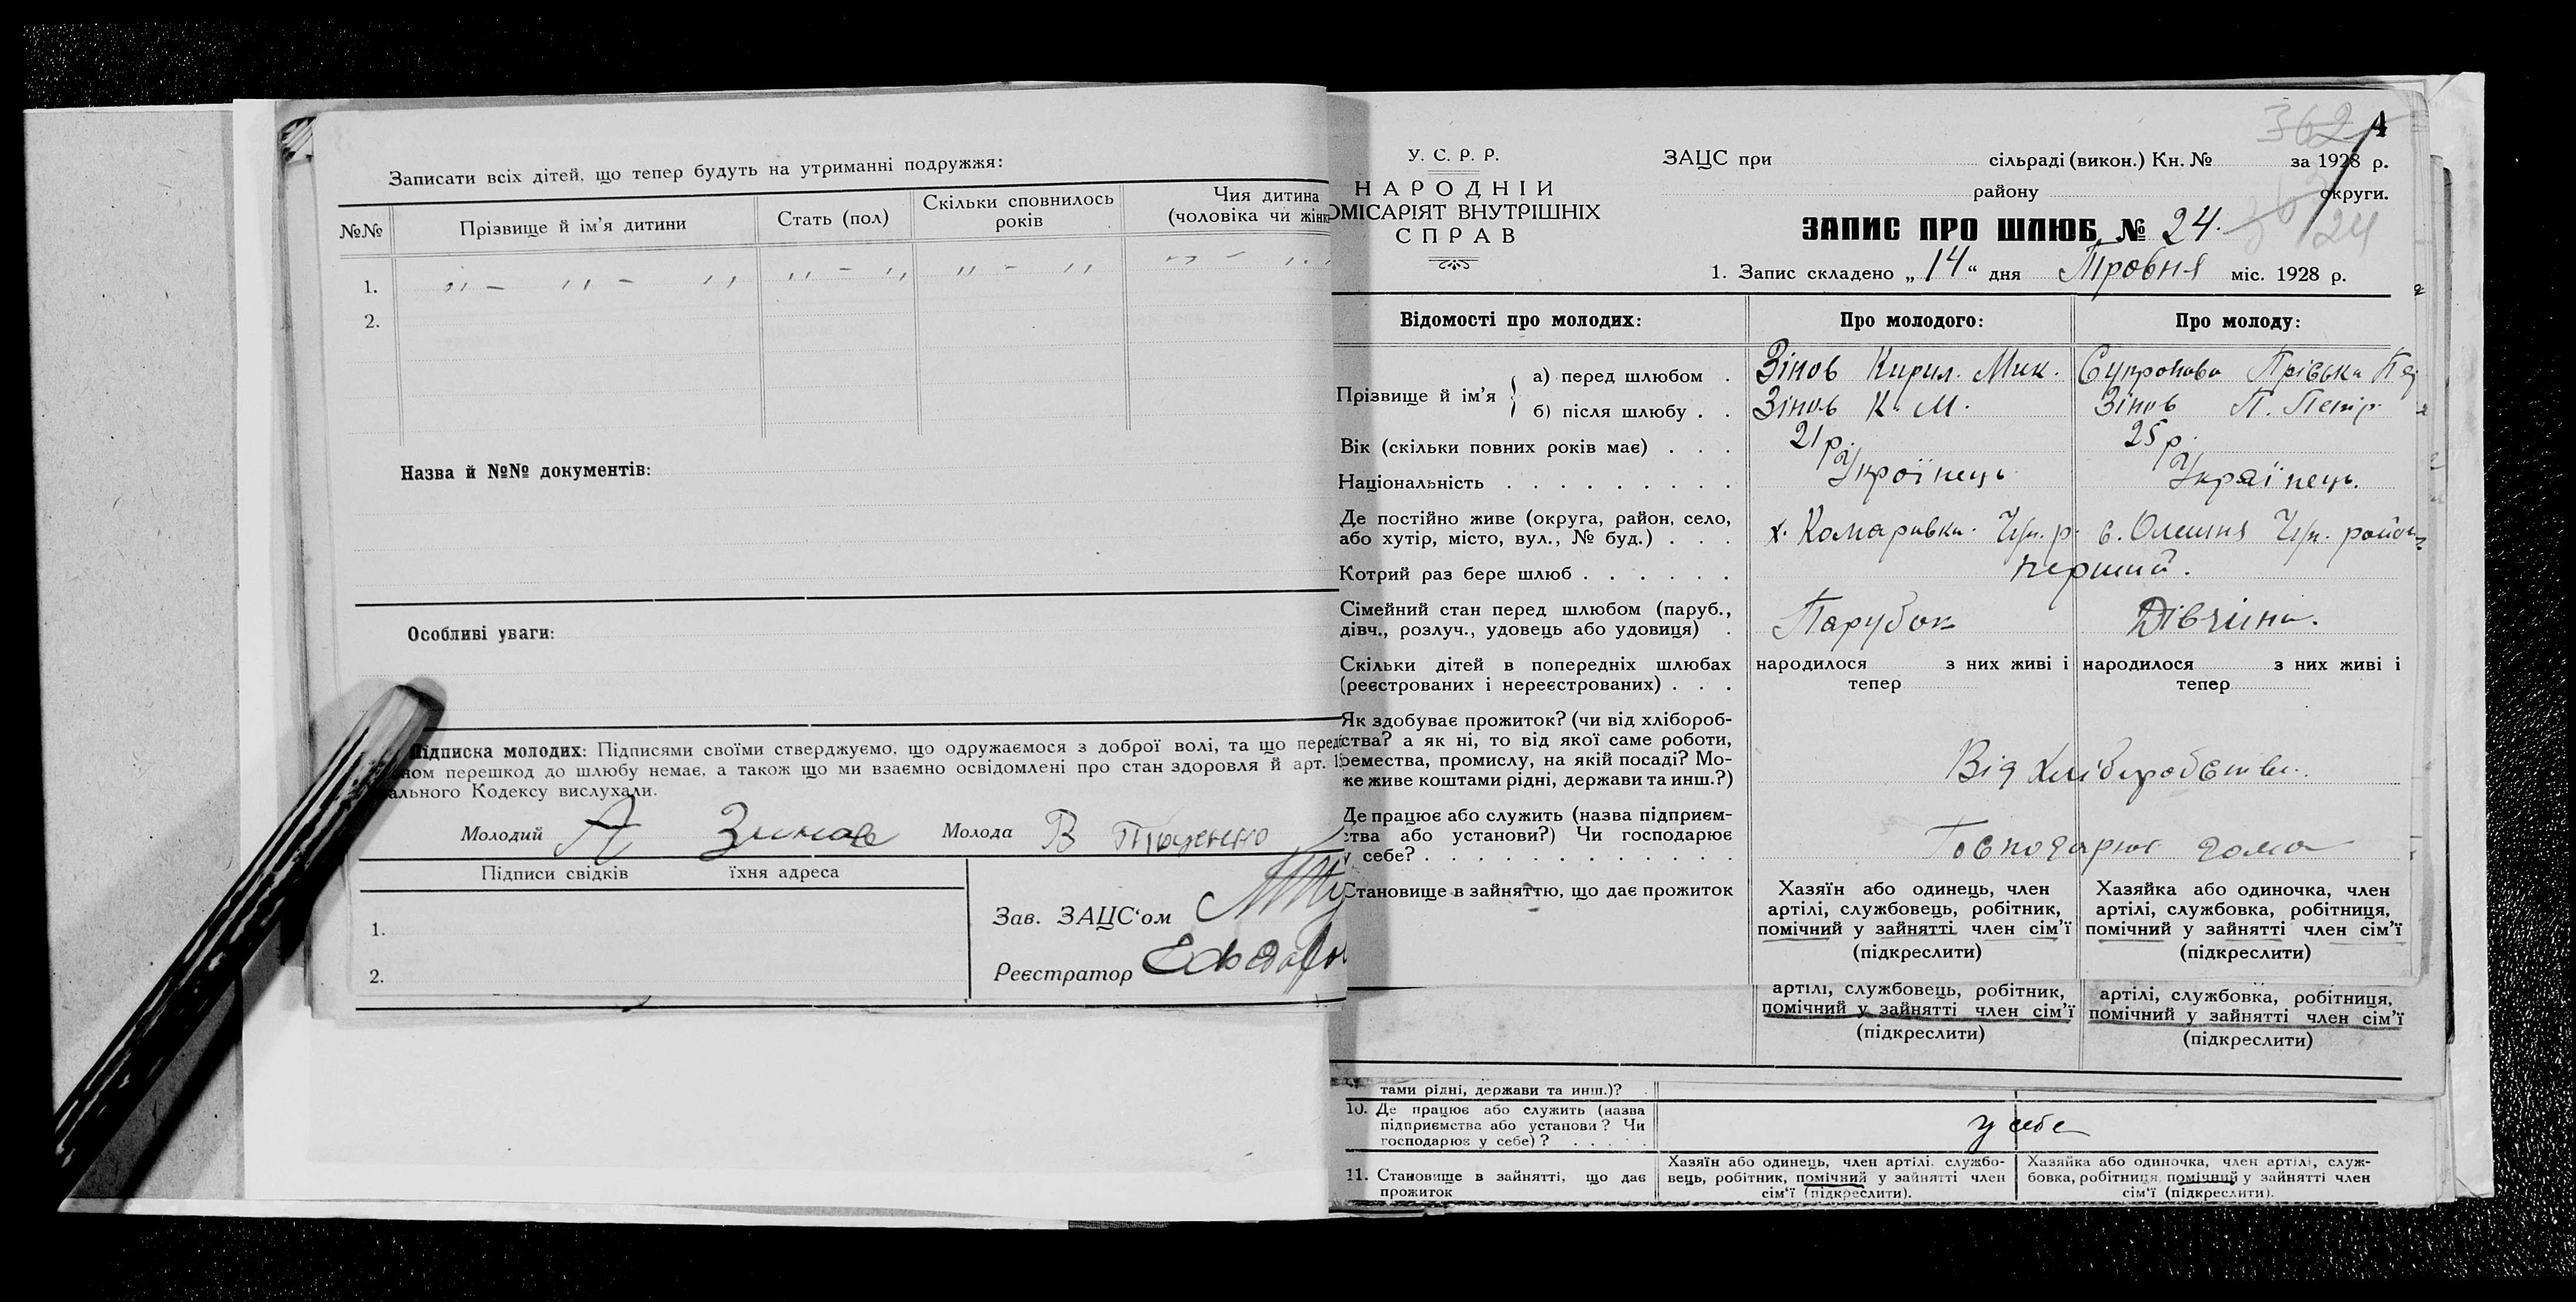 Записати всіх дітей, що тепер будуть на утриманні подружжя:
№№ Прізвище й ім'я дитини Стать (пол) Скільки сповнилось років Чия дитина (чоловіка чи жінк
1. " - " - " " - " " - " " - "
2.
Назва й №№ документів:
Особливі уваги:
Підписка молодих: Підписями своїми стверджуємо, що одружаємося з доброї волі, та що перед
ном перешкод до шлюбу немає, а також що ми взаємно освідомлені про стан здоровля й арт. 1
ального Кодексу вислухали.
Молодий Зинов Молода В
Підписи свідків їхня адреса
1.
2.
Зав. ЗАЦС'ом
Реєстратор
4
362
У. С. Р. Р.
НАРОДНІЙ
ОМІСАРІЯТ ВНУТРІШНІХ
СПРАВ
ЗАЦС при сільраді (викон.) Кн. № за 1928 р.
району округи.
ЗАПИС ПРО ШЛЮБ № 24.
24
1. Запис складено „14“ дня Тровня міс. 1928 р.
Відомості про молодих: Про молодого: Про молоду:
Прізвище й ім'я
а) перед шлюбом . Зінов Кирил. Мик. Супронова Прівська
б) після шлюбу . . Зінов К. М. Зінов П. Петр.
Вік (скільки повних років має) . . . 21 р. 25 р.
Національність . . . . . . . . . Украінець Українець.
Де постійно живе (округа, район, село,
або хутір, місто, вул., № буд.) . . . х. Комаривка. р. с. Олешня район
Котрий раз бере шлюб . . . . . . перший.
Сімейний стан перед шлюбом (паруб.,
дівч., розлуч., удовець або удовиця) . Парубок Дівчина.
Скільки дітей в попередніх шлюбах
(реєстрованих і нереєстрованих) . . .
народилося з них живі і
тепер
народилося з них живі і
тепер
Як здобуває прожиток? (чи від хлібороб-
ства? а як ні, то від якої саме роботи,
ремества, промислу, на якій посаді? Мо-
же живе коштами рідні, держави та инш.?)
Від хліборобства.
Де працює або служить (назва підприєм-
ства або установи?) Чи господарює
у себе? . . . . . . . . . . . .
Господарює дома
Становище в зайняттю, що дає прожиток
Хазяїн або одинець, член
артілі, службовець, робітник,
помічний у зайнятті член сім'ї
(підкреслити)
Хазяйка або одиночка, член
артілі, службовка, робітниця,
помічний у зайнятті член сім'ї
(підкреслити)
артілі, службовець, робітник,
помічний у зайнятті член сім'ї
(підкреслити)
артілі, службовка, робітниця,
помічний у зайнятті член сім'ї
(підкреслити)
тами рідні, держави та инш.)?
10. Де працює або служить (назва
підприємства або установи? Чи
господарює у себе)? . . . . .
у себе
11. Становище в зайнятті, що дає
прожиток
Хазяїн або одинець, член артілі, службо-
вець, робітник, помічний у зайнятті член
сім'ї (підкреслити).
Хазяйка або одиночка, член артілі, служ-
бовка, робітниця, помічний у зайнятті член
сім'ї (підкреслити).